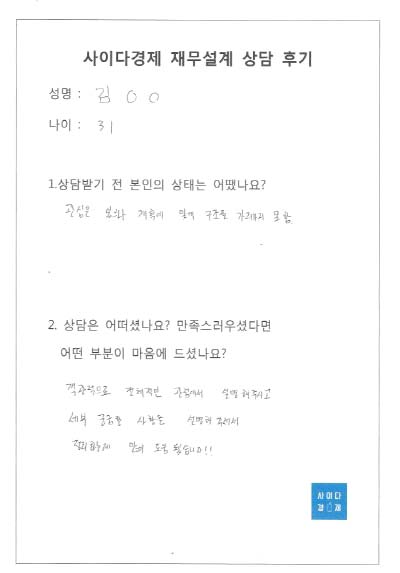 사이다경제 재무설계 상담 후기
성명 : 김 O O
나이 : 31
1.상담받기 전 본인의 상태는 어땠나요?
관심은 계획에 구조를 못 함
2. 상담은 어떠셨나요? 만족스러우셨다면
어떤 부분이 마음에 드셨나요?
객관적으로 전체적인 관점에서 설명해주시고
세부 궁금한 사항은 설명해주셔서
많이 도움 됐습니다!!
사이다
경제